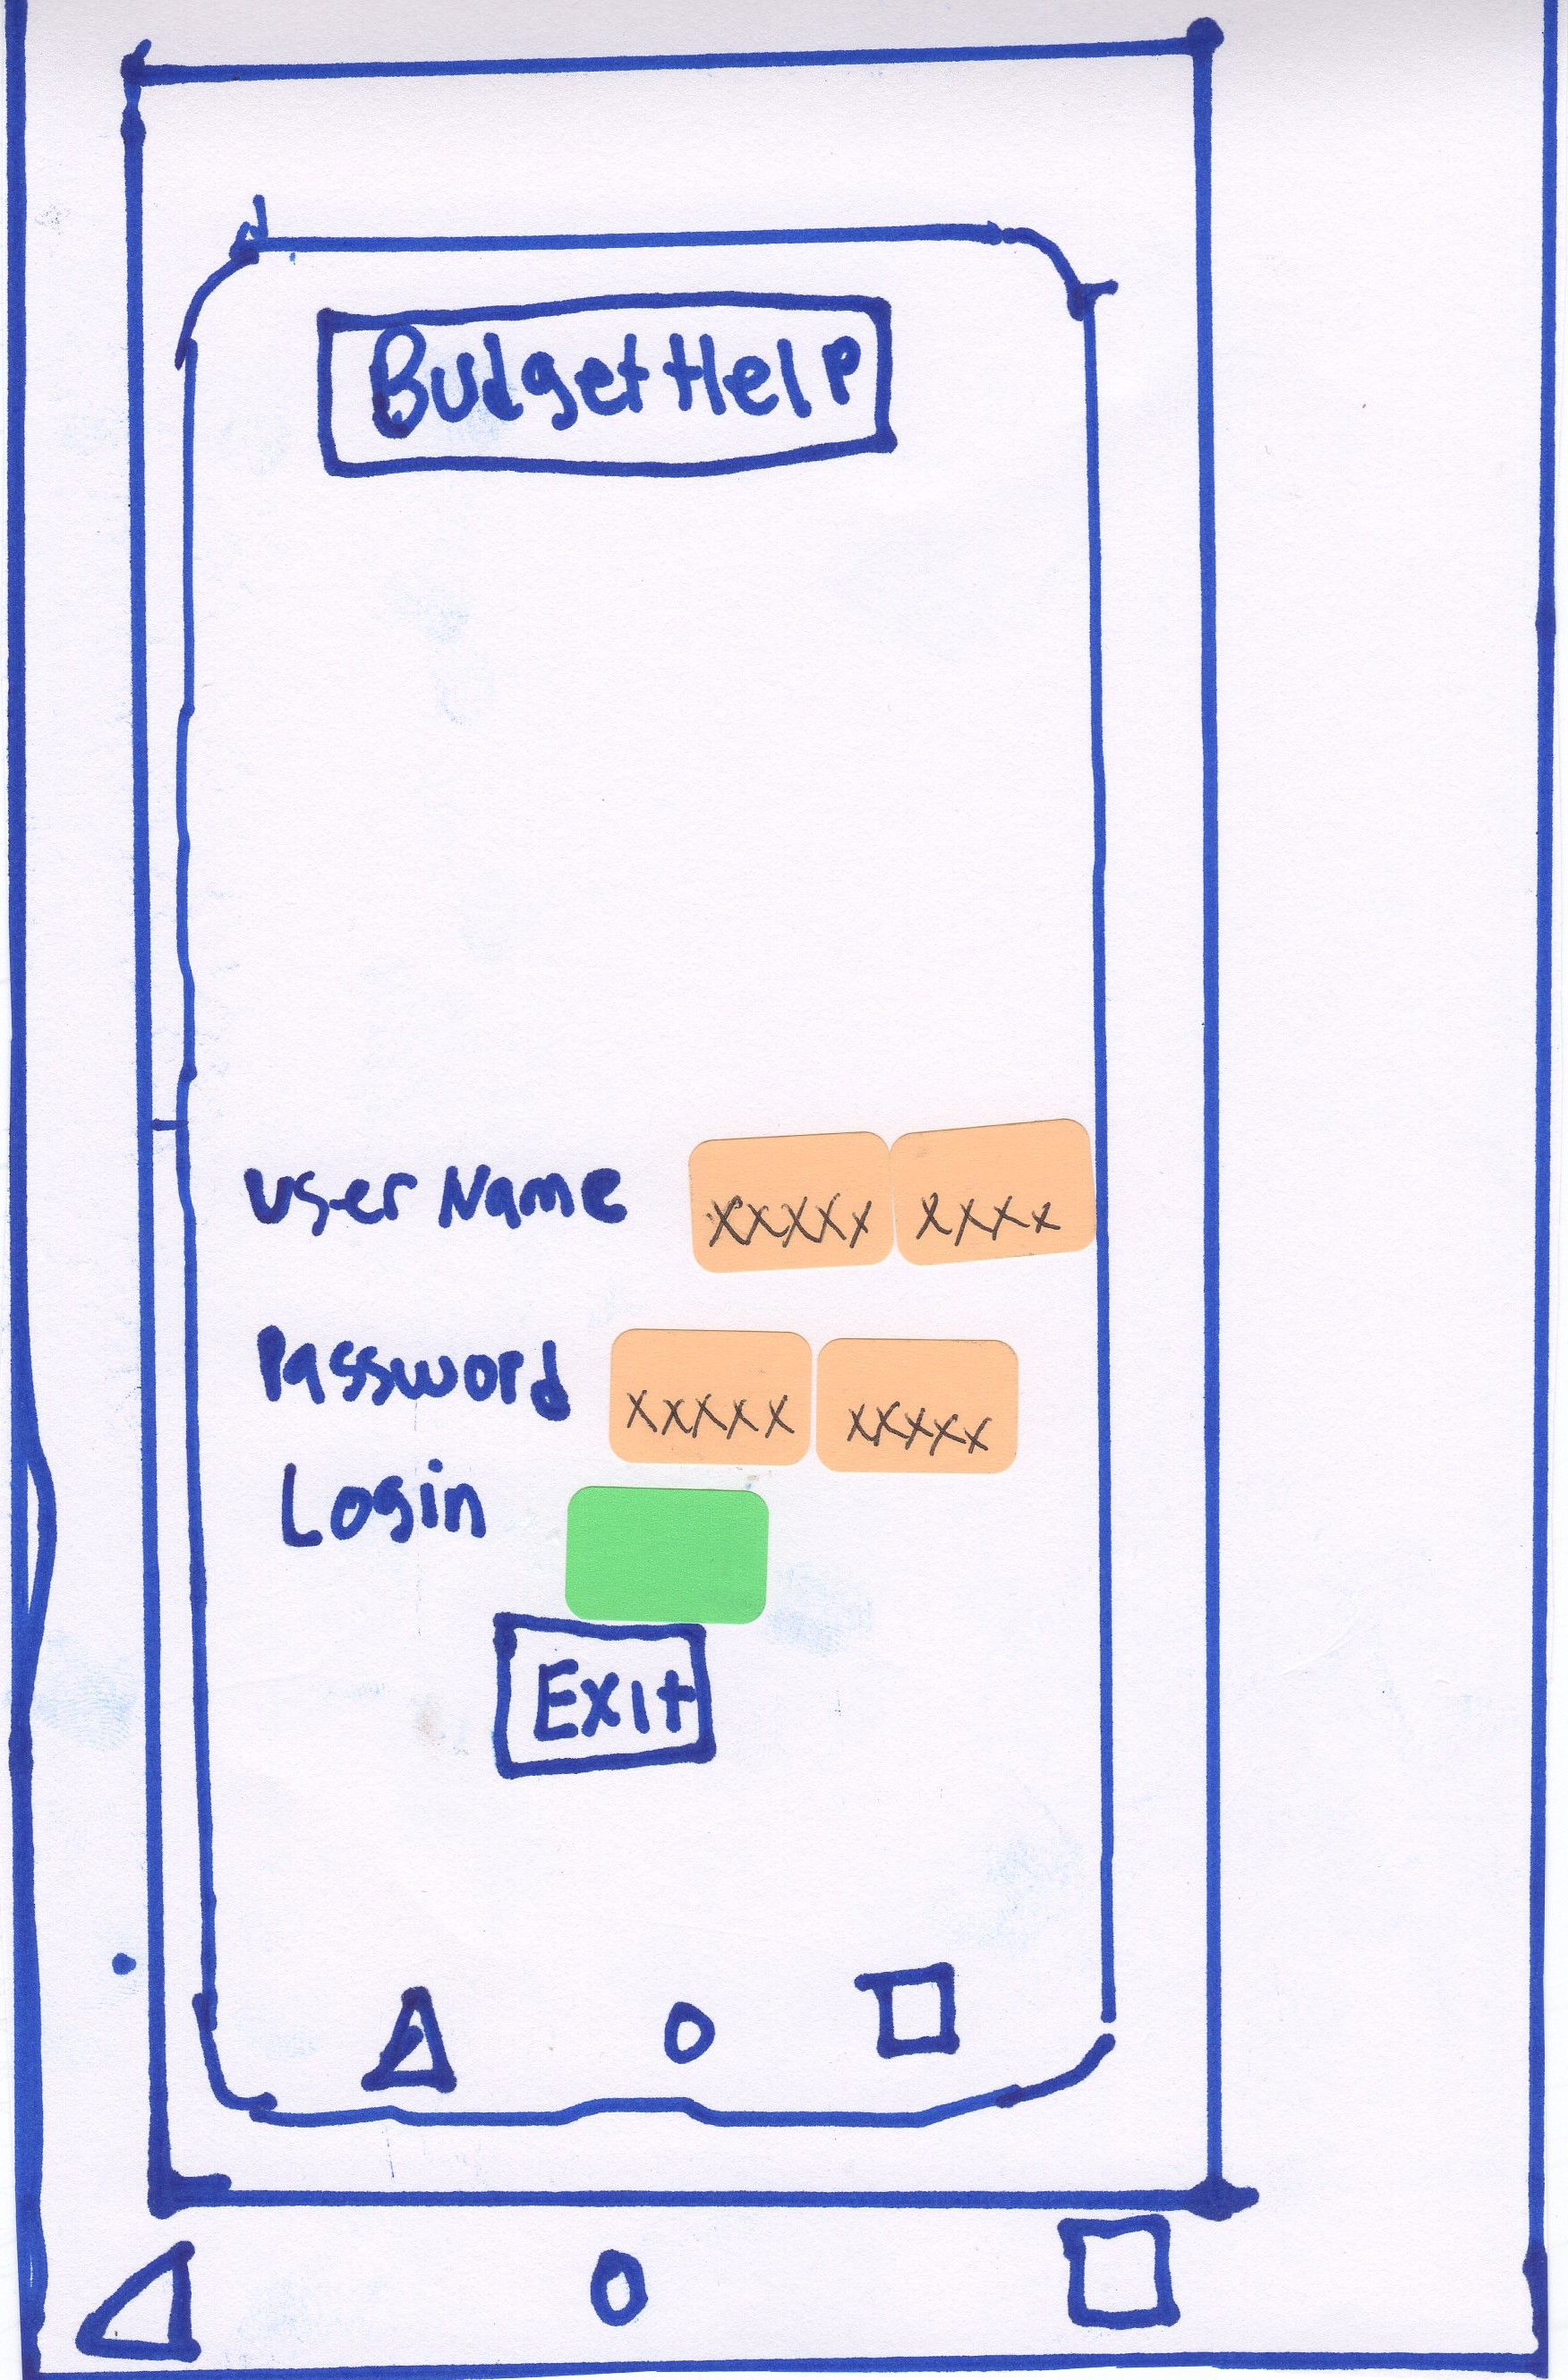 BudgetHelp
User Name xxxxx xxxx
Password xxxxx xxxxx
Login
Exit